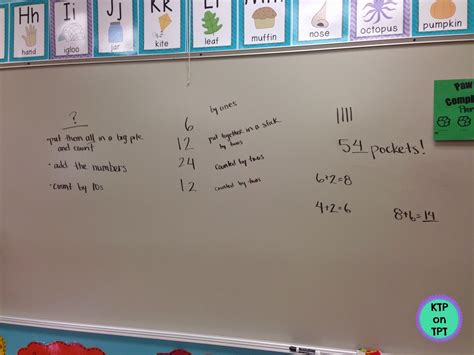 Hh
Ii
Jj
Kk
Ll
Mm
hand
igloo
jar
kite
leaf
muffin
nose
octopus
pumpkin
?
•put them all in a big pile
and count
•add the numbers
•count by 10s
6 by ones
12 put together in a stick
by twos
24 counted by twos
12 counted by twos
||||
54 pockets!
6+2=8
4+2=6
8+6=14
Paw
KTP
on
TPT